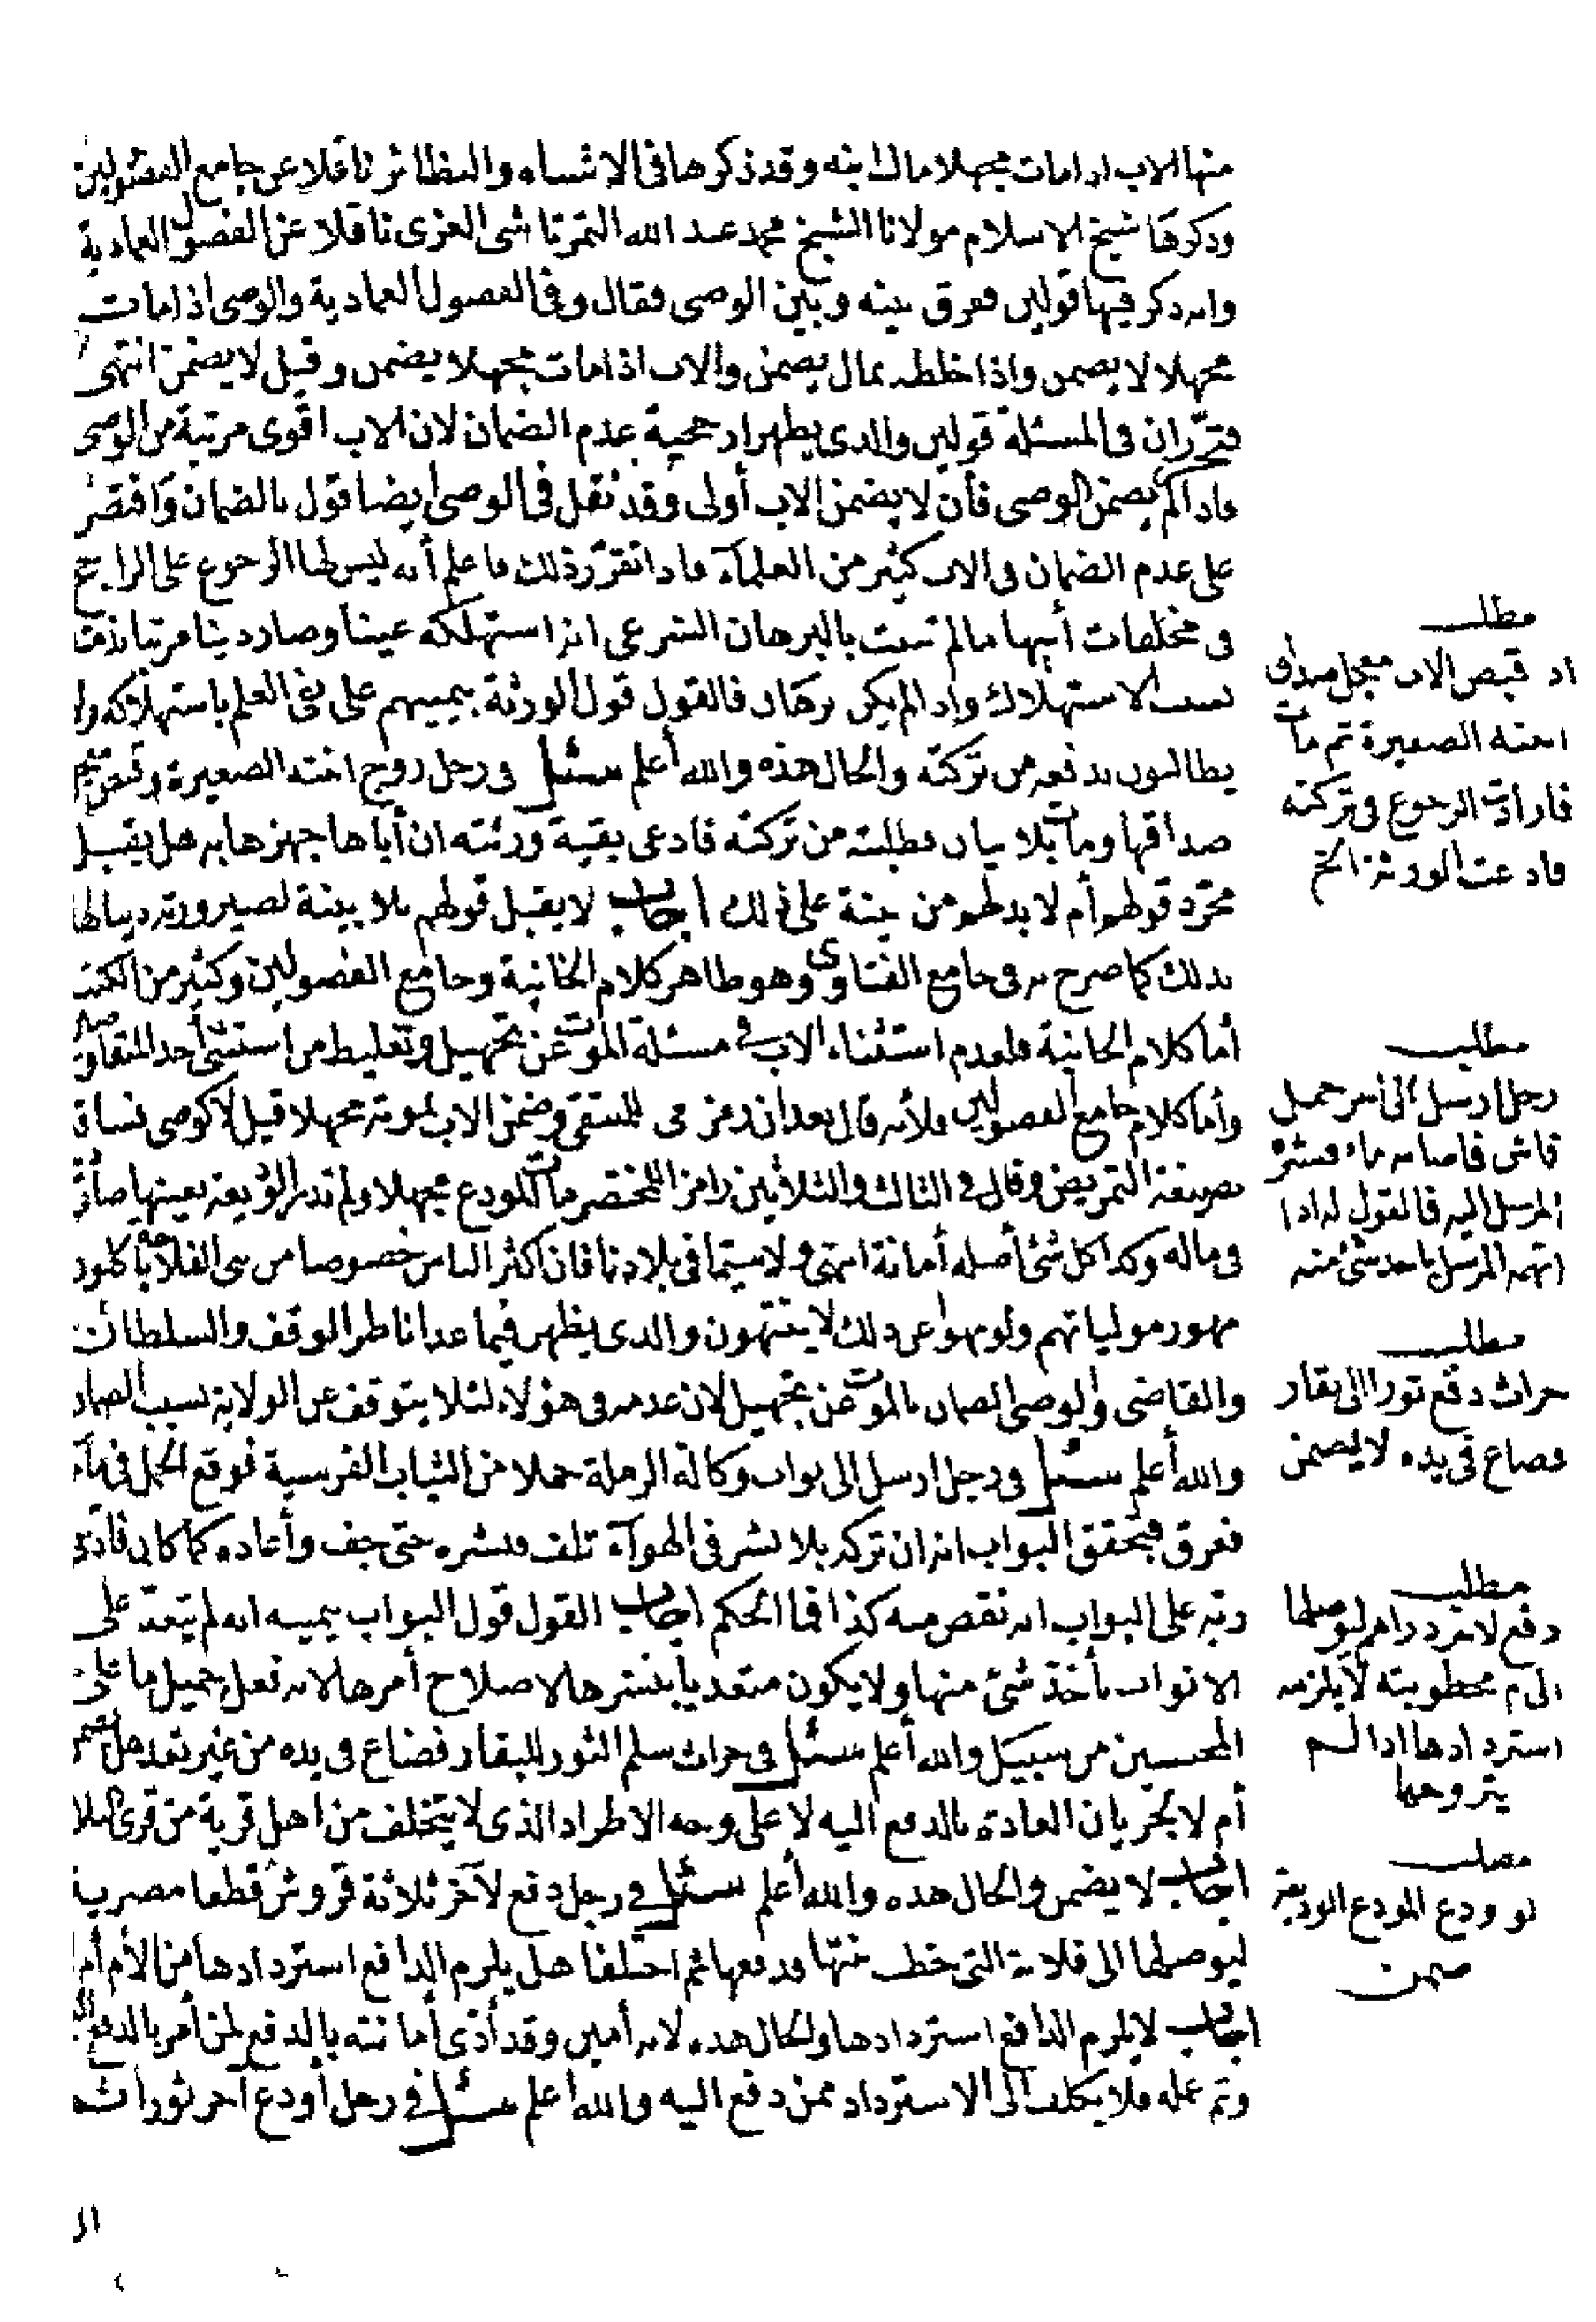 منها الاب اذا مات مجهلا مال ابنه وقد ذكرها فى الاشباه والنظائر ناقلا عن جامع الفصولين
وذكرها شيخ الاسلام مولانا الشيخ محمد عبد الله التمرتاشى الغزى ناقلا عن الفصول العمادية
وانه ذكر فيها قولين ففرق بينه وبين الوصى فقال وفى الفصول العمادية والوصى اذا مات
مجهلا لا يضمن واذا خلطه بمال يضمن والاب اذا مات مجهلا يضمن وقيل لا يضمن انتهى
فتحرر ان فى المسئلة قولين والذى يظهر ارجحية عدم الضمان لان الاب اقوى مرتبة من الوصى
فاذا لم يضمن الوصى فأن لا يضمن الاب أولى وقد نقل فى الوصى ايضا قول بالضمان واقتصر
على عدم الضمان فى الاب كثير من العلمآء فاذا تقرر ذلك فاعلم أنه ليس لها الرجوع على الراجح
فى مخلفات أبيها مالم تثبت بالبرهان الشرعى انه استهلكه عينا وصار دينا مرتبا بذمته
بسبب الاستهلاك واذا لم يكن برهان فالقول قول الورثة بيمينهم على نفى العلم باستهلاكه ولا
يطالبون بدفعه من تركته والحال هذه والله أعلم سئل فى رجل زوج اخته الصغيرة وقبض
صداقها ومات بلا بيان فطلبته من تركته فادعى بقية ورثته ان أباها جهزها به هل يقبل
مجرد قولهم أم لا بد لهم من بينة على ذلك اجاب لا يقبل قولهم بلا بينة لصيرورته دينا لها
بذلك كما صرح به فى جامع الفتاوى وهو ظاهر كلام الخانية وجامع الفصولين وكثير من الكتب
أما كلام الخانية فلعدم استثناء الاب فى مسئلة الموت عن تجهيل وتغليط من استثنى أحد المتفاوضين
وأما كلام جامع الفصولين فلأنه قال بعد ان رمز فى المنتقى وضمن الاب بموته مجهلا قيل لا كوصى فساقه
بصيغة التمريض وقال فى الثالث والثلاثين رامزا للمختصر مات المودع مجهلا ولم تدر الوديعة بعينها صارت
فى ماله وكذا كل شئ أصله أمانة انتهى ولا سيما فى بلادنا فان أكثر الناس خصوصا من بنى الفلاحة يأكلون
مهور مولياتهم ولو نهوا عن ذلك لا ينتهون والذى يظهر فيما عدا ناظر الوقف والسلطان
والقاضى والوصى الضمان بالموت عن تجهيل لان عدمه فى هؤلاء لئلا يتوقف عن الولاية بسبب الضمان
والله أعلم سئل فى رجل ارسل الى بواب وكالة الرملة حملا من الثياب الفرسية فوقع الحمل فى مآء
فغرق فتحقق البواب انه ان تركه بلا نشر فى الهوآء تلف فنشره حتى جف وأعاده كما كان فادعى
ربه على البواب انه نقص منه كذا فما الحكم اجاب القول قول البواب بيمينه انه لم يتعد على
الاثواب بأخذ شئ منها ولا يكون متعديا بنشرها لاصلاح أمرها لانه فعل جميل ما على
المحسنين من سبيل والله أعلم سئل فى حراث سلم الثور للبقار فضاع فى يده من غير تعد هل يضمن
أم لا لجريان العادة بالدفع اليه لا على وجه الاطراد الذى لا يتخلف من اهل قرية من قرى البلاد
اجاب لا يضمن والحال هذه والله أعلم سئل فى رجل دفع لآخر ثلاثة قروش قطعا مصرية
ليوصلها الى فلانة التى خطب بنتها ودفعها ثم اختلفا هل يلزم الدافع استردادها من الأم أم لا
اجاب لا يلزم الدافع استردادها والحال هذه لانه أمين وقد أدى أمانته بالدفع لمن أمر بالدفع اليه
وتم عمله فلا يكلف الى الاسترداد ممن دفع اليه والله أعلم سئل فى رجل أودع آخر ثورا ثم
مطلب
اذ قبض الاب معجل صداق
ابنته الصغيرة ثم مات
فارادت الرجوع فى تركته
فادعت الورثة الخ
مطلب
رجل ارسل الى آخر حمل
قماش فاصابه ماء فنشره
المرسل اليه فالقول له اذا
اتهمه المرسل باخذ شئ منه
مطلب
حراث دفع ثورا الى بقار
فضاع فى يده لا يضمن
مطلب
دفع لاخر دراهم ليوصلها
الى ام مخطوبته لا يلزمه
استردادها اذا لم
يتزوجها
مطلب
لو ودع المودع الوديعة
ضمن